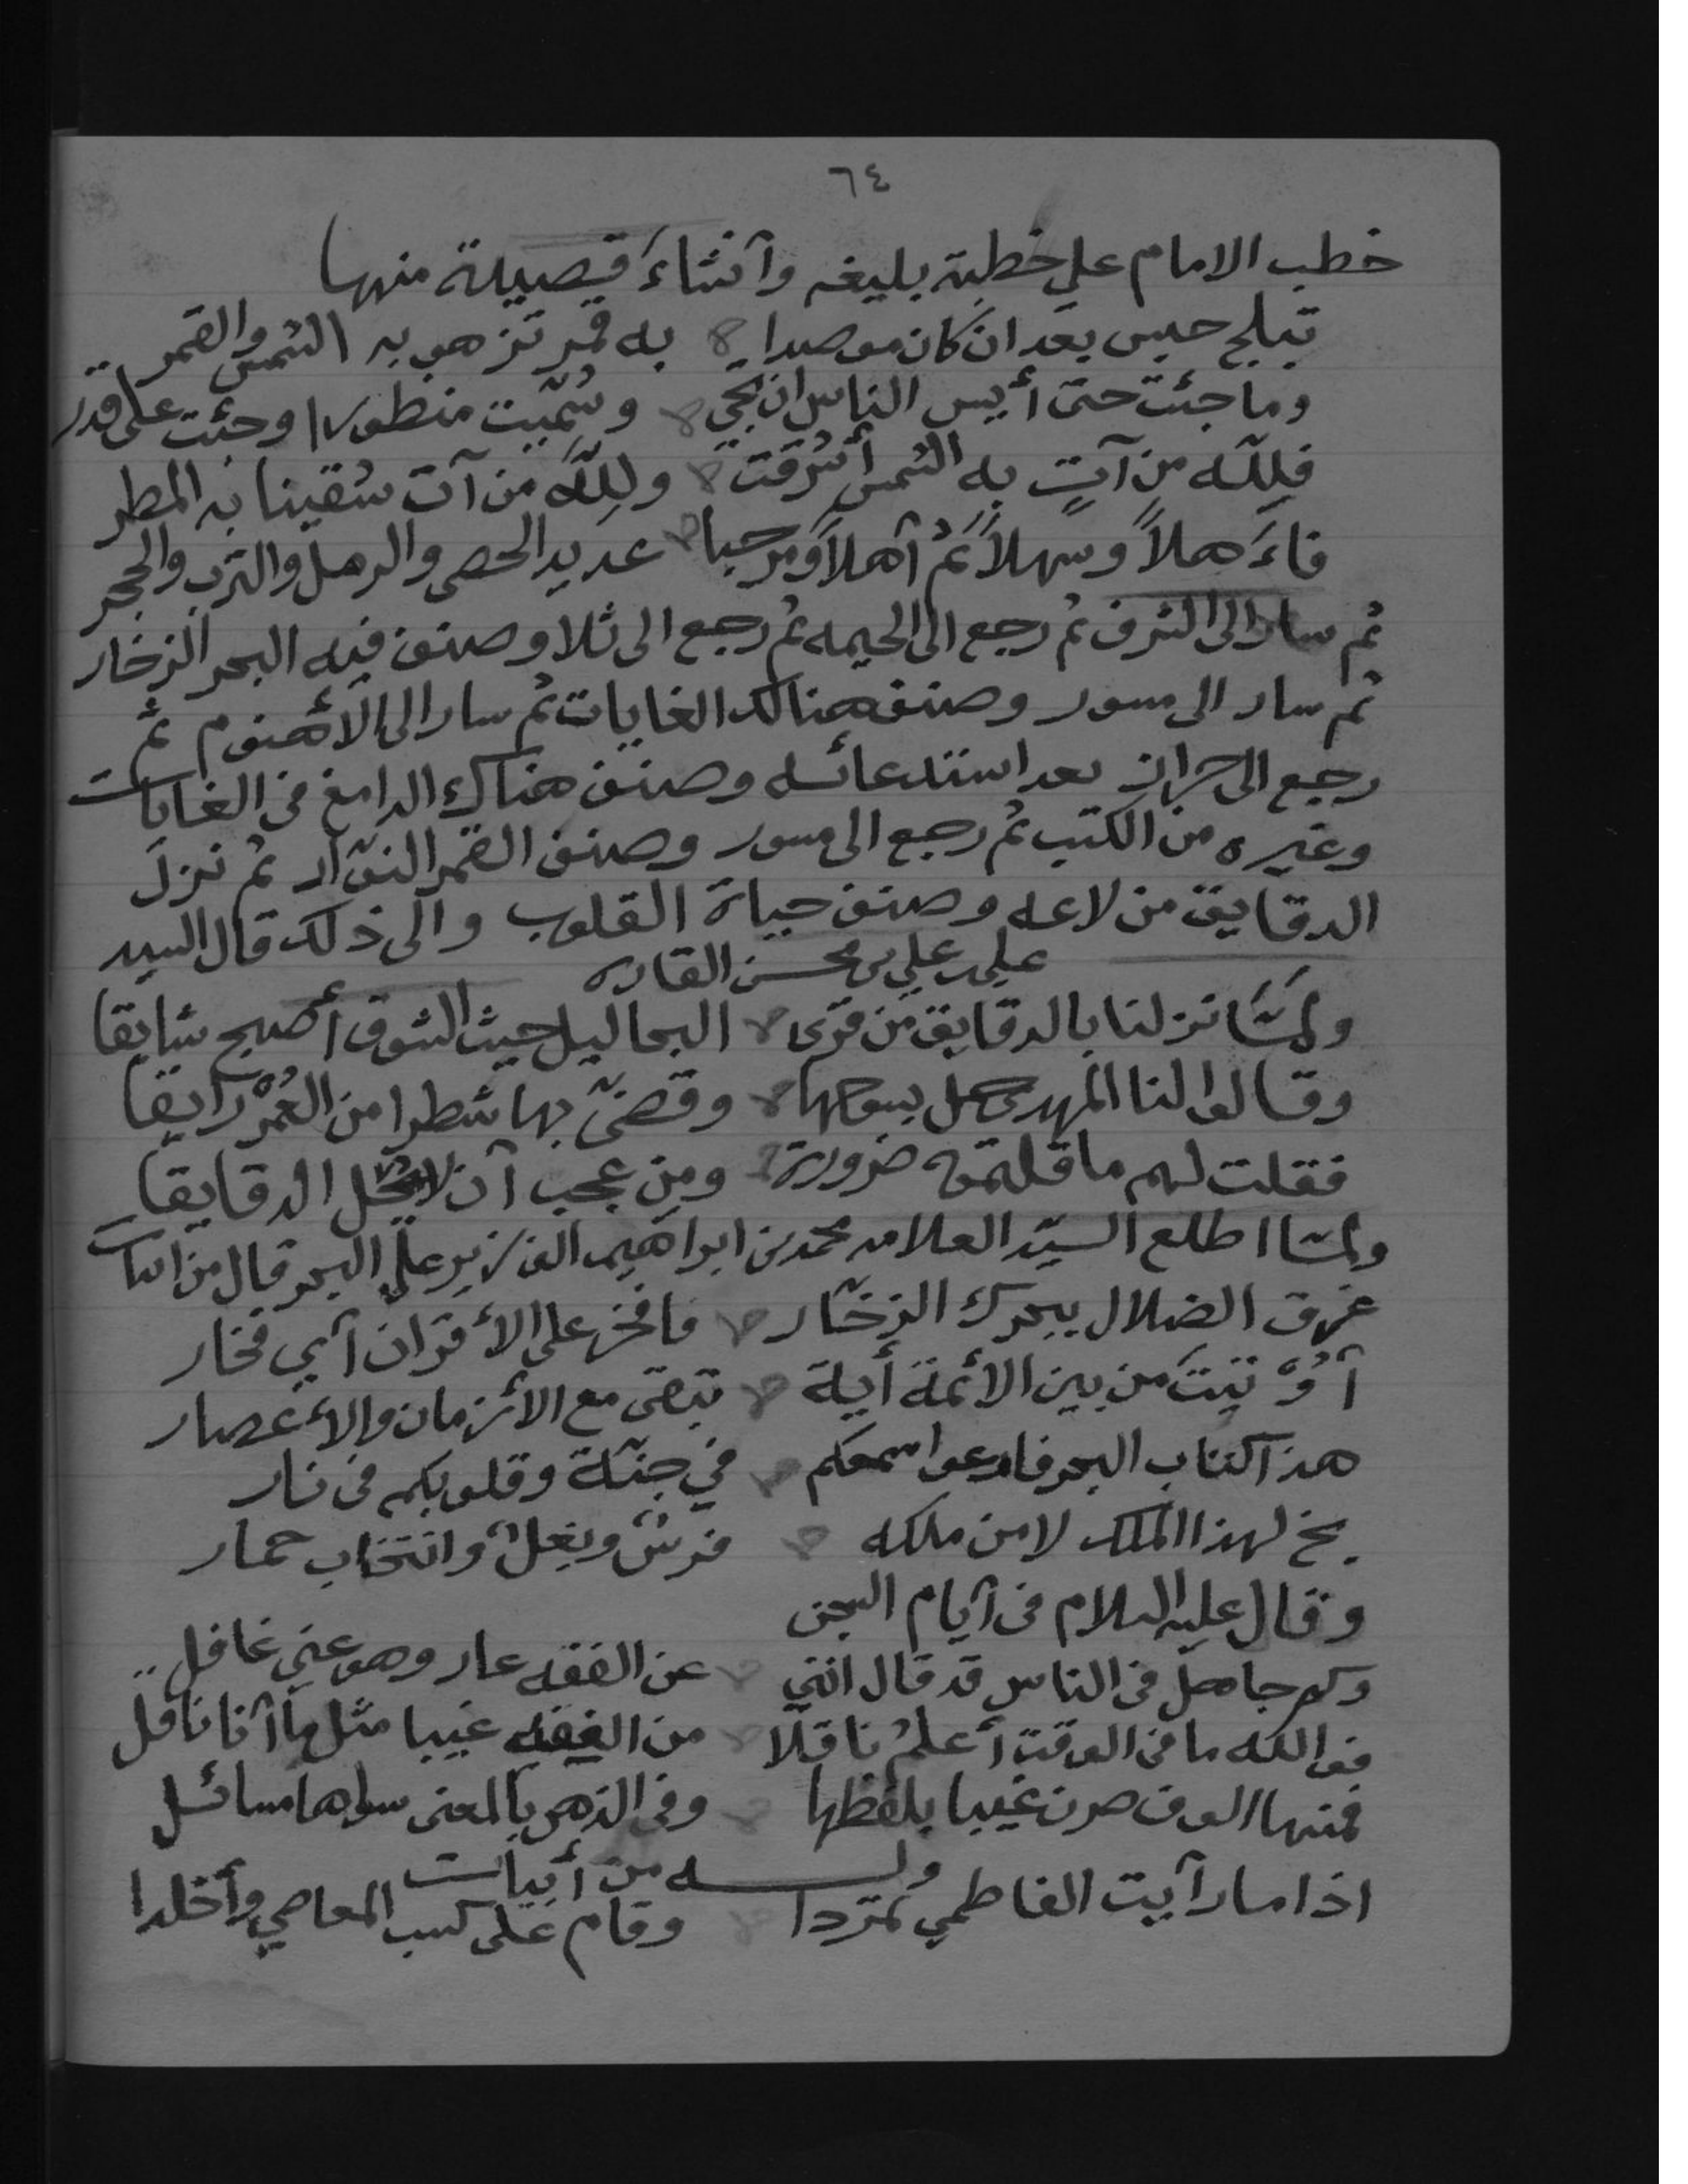 ٦٤
خطب الامام علي خطبة بليغه وآنشاءَ قصيدة منها
تبلج حبس بعد ان كان موصدا به قمر تزهو به الشمس والقمر
وما جئت حتى أيس الناس ان تجي وسُمّيت منظورا وجئت على قدر
فلِلّه من آتٍ به الشمس أشرقت ولِلّه من آت سُقينا به المطر
فاءَهلاً وسهلاً ثُم آهلاً ومرحبا عديد الحصى والرمل والترب والحجر
ثم سار الى الشرف ثم رجع الى الحيمه ثم رجع الى ثلا وصنف فيه البحر الزخار
ثم سار الى مسور وصنف هنالك الغايات ثم سار الى الأهنوم ثم
رجع الى حراز بعد استدعائه وصنف هناك الدامغ في الغايات
وغيره من الكتب ثم رجع الى مسور وصنف القمر النوّار ثم نزل
الدقايق من لاعه وصنف حياة القلوب والى ذلك قال السيد
علي بن محسن القاره
ولمّا نزلنا بالدقايق من قرى البحاليل حيث الشوق أصبح شايقا
وقالوا لنا المهدي حل ببوحها وقضىّ بها شطرا من العُمْر رايقا
فقلت لهم ما قلتموه ضرورة ومن عجب آن لا يحُل الدقايقا
ولمّا اطلع السيّد العلامه محمد بن ابراهيم الوزير على البحر قال من ابيات
غرق الضلال ببحرك الزخّار فافخر على الأقران آي فخار
آُوْتيتَ من بين الأئمة أية تبقى مع الأزمان والأعصار
هذا كتاب البحر فارعوا سمعكم في جنّة وقلوبكم في نار
بخ لهذا الملك لا من ملكه فرسٌ وبغلٌ وانتخاب حمار
وقال عليه السلام في آيام السجن
وكم جاهل في الناس قد قال انني عن الفقه عار وهو عني غافل
فوالله ما في الوقت أعلمُ ناقلا من الفقه غيبا مثل ما آنا ناقل
فمنها الوف صرن غيبا بلفظها وفي الذهن بالمعنى سواها مسائل
وله من أبيات
اذا ما رآيت الفاطمي تمرّدا وقام على كسب المعاصي وأخلدا